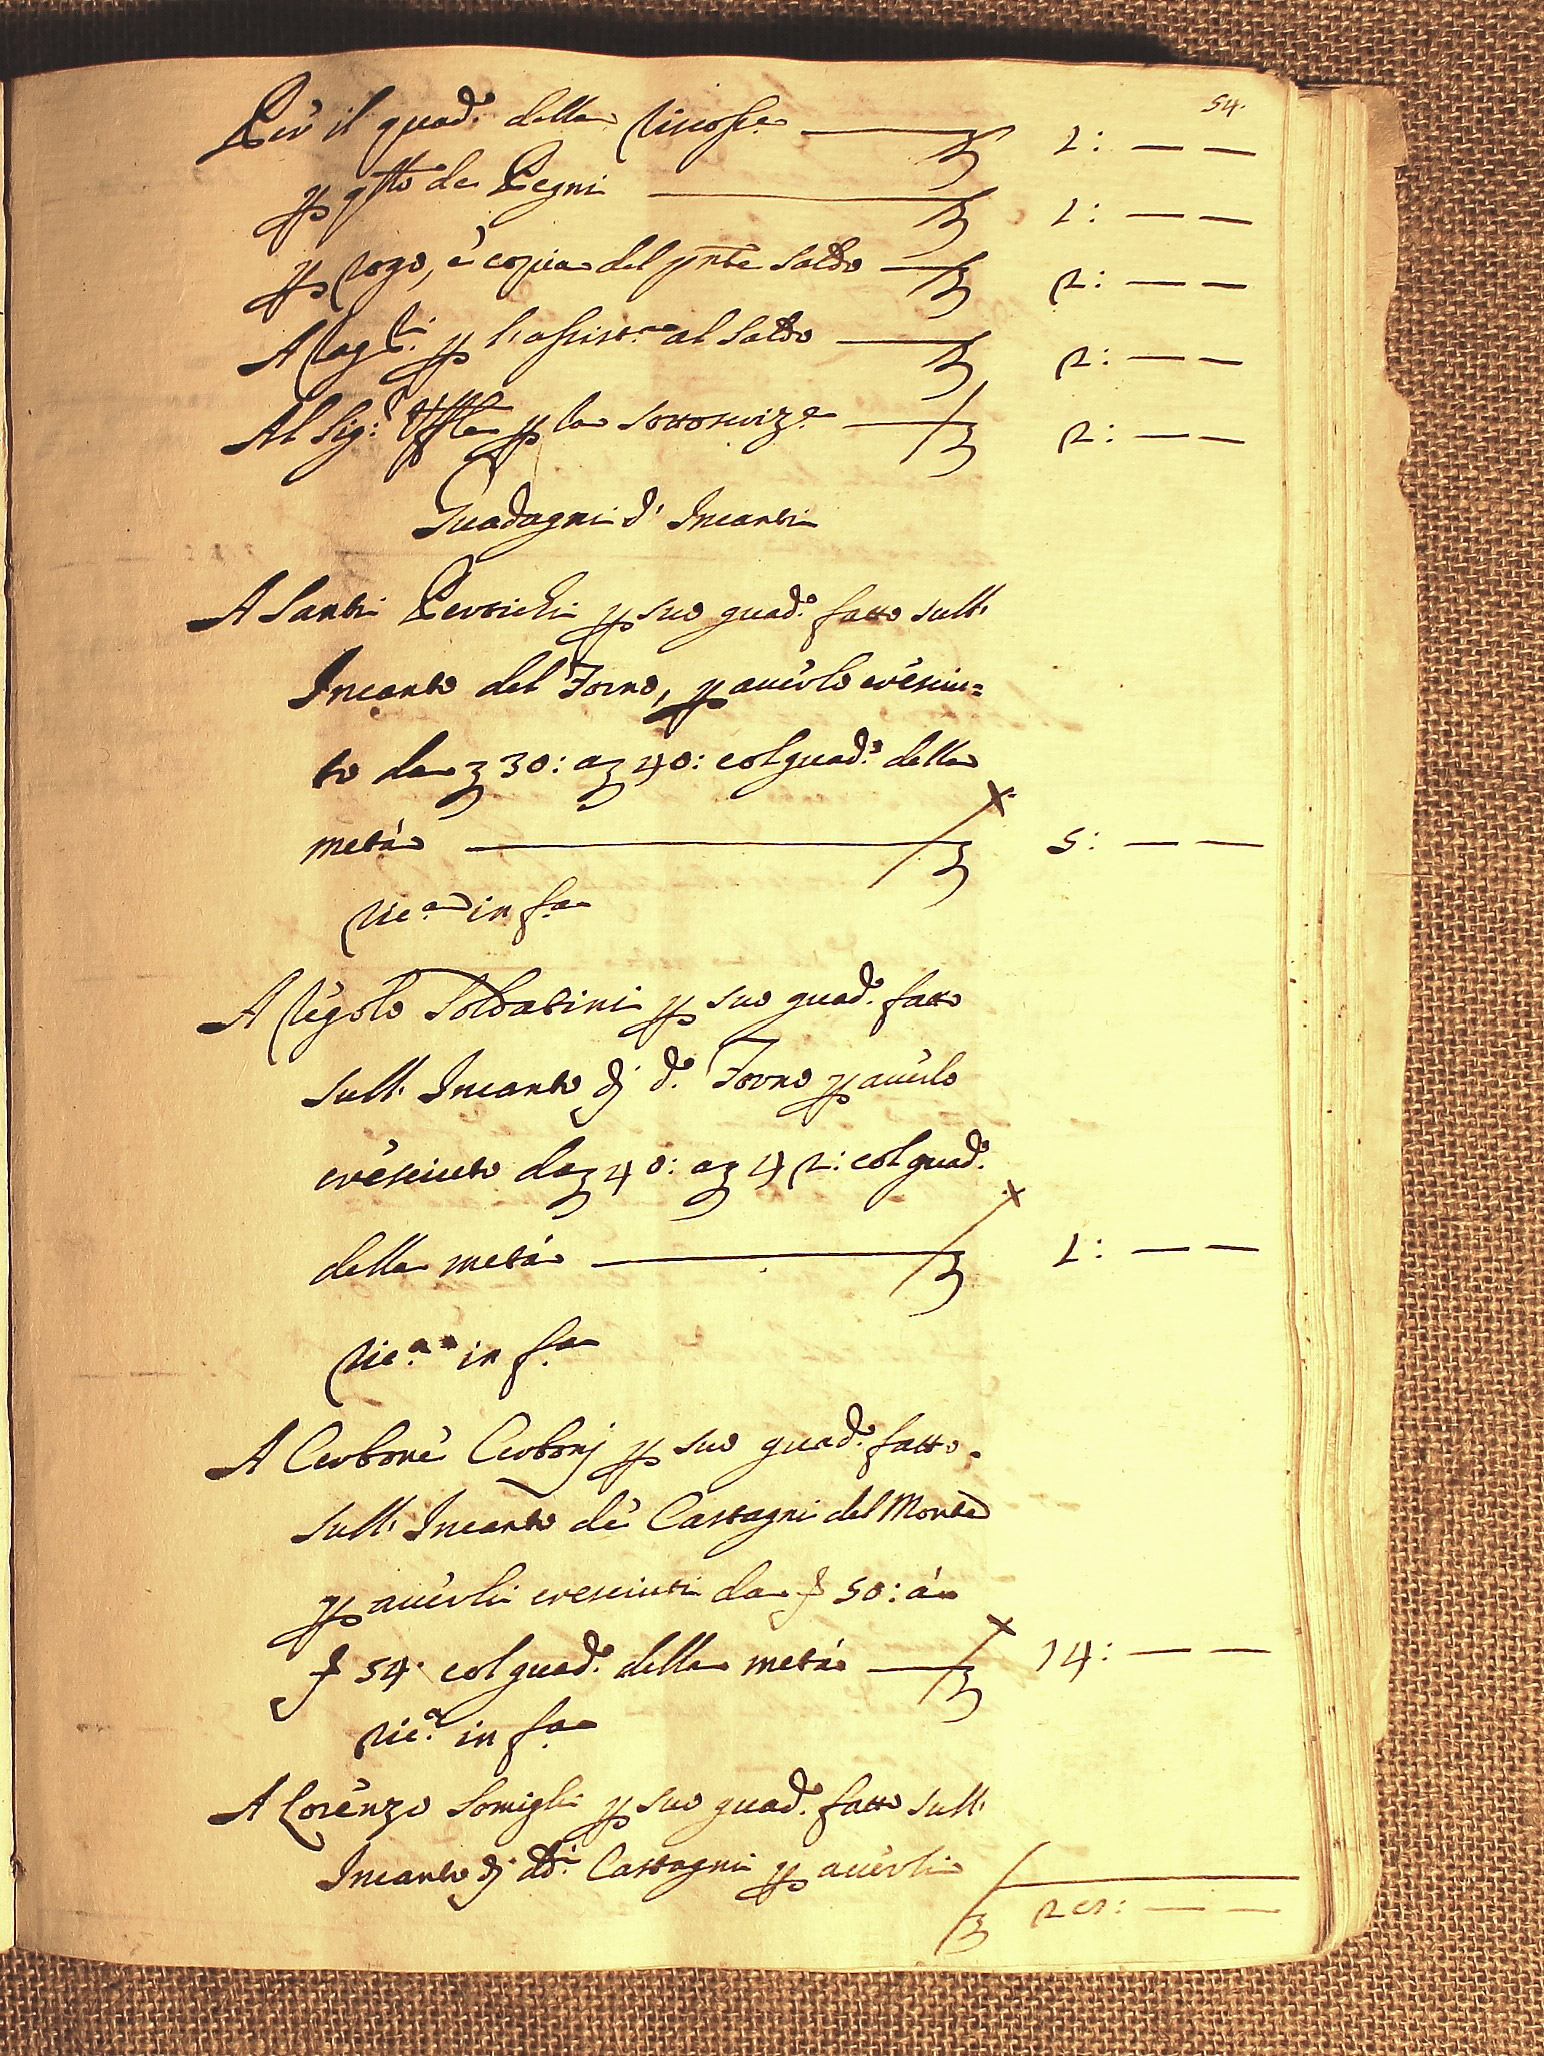 54.
Per il quad.o della Riscossa — £ 1: — —
p q.sto de Pegni — £ 1: — —
p rogo, e copia del pnte Saldo — £ 2: — —
A Rag.ri p l'assist.za al Saldo — £ 2: — —
Al Sig.r p la sottoscriz.e — £ 2: — —
Guadagni d'Incanti
A Santi Pertichi p suo guad.o fatto sull'
Incanto del Forno, p avérlo crésciu=
to da £ 30: a £ 40: col guad.o della
metà — £ 5: — —
Ric.a in f.a
A Régolo Soldatini p suo guad.o fatto
sull' Incanto dj d.o Forno p avérlo
crésciuto da £ 40: a £ 42: col guad.o
della metà — £ 1: — —
Ric.a in f.a
A Cerboné Cerbonj p suo guad.o fatto
sull' Incanto dé Castagni del Monte
p avérli cresciuti da f 50: à
f 54. col guad.o della metà — £ 14: — —
Ric.a in f.a
A Lorénzo Somigli p suo guad.o fatto sull'
Incanto dj dd.i Castagni p avérli
£ 28: — —